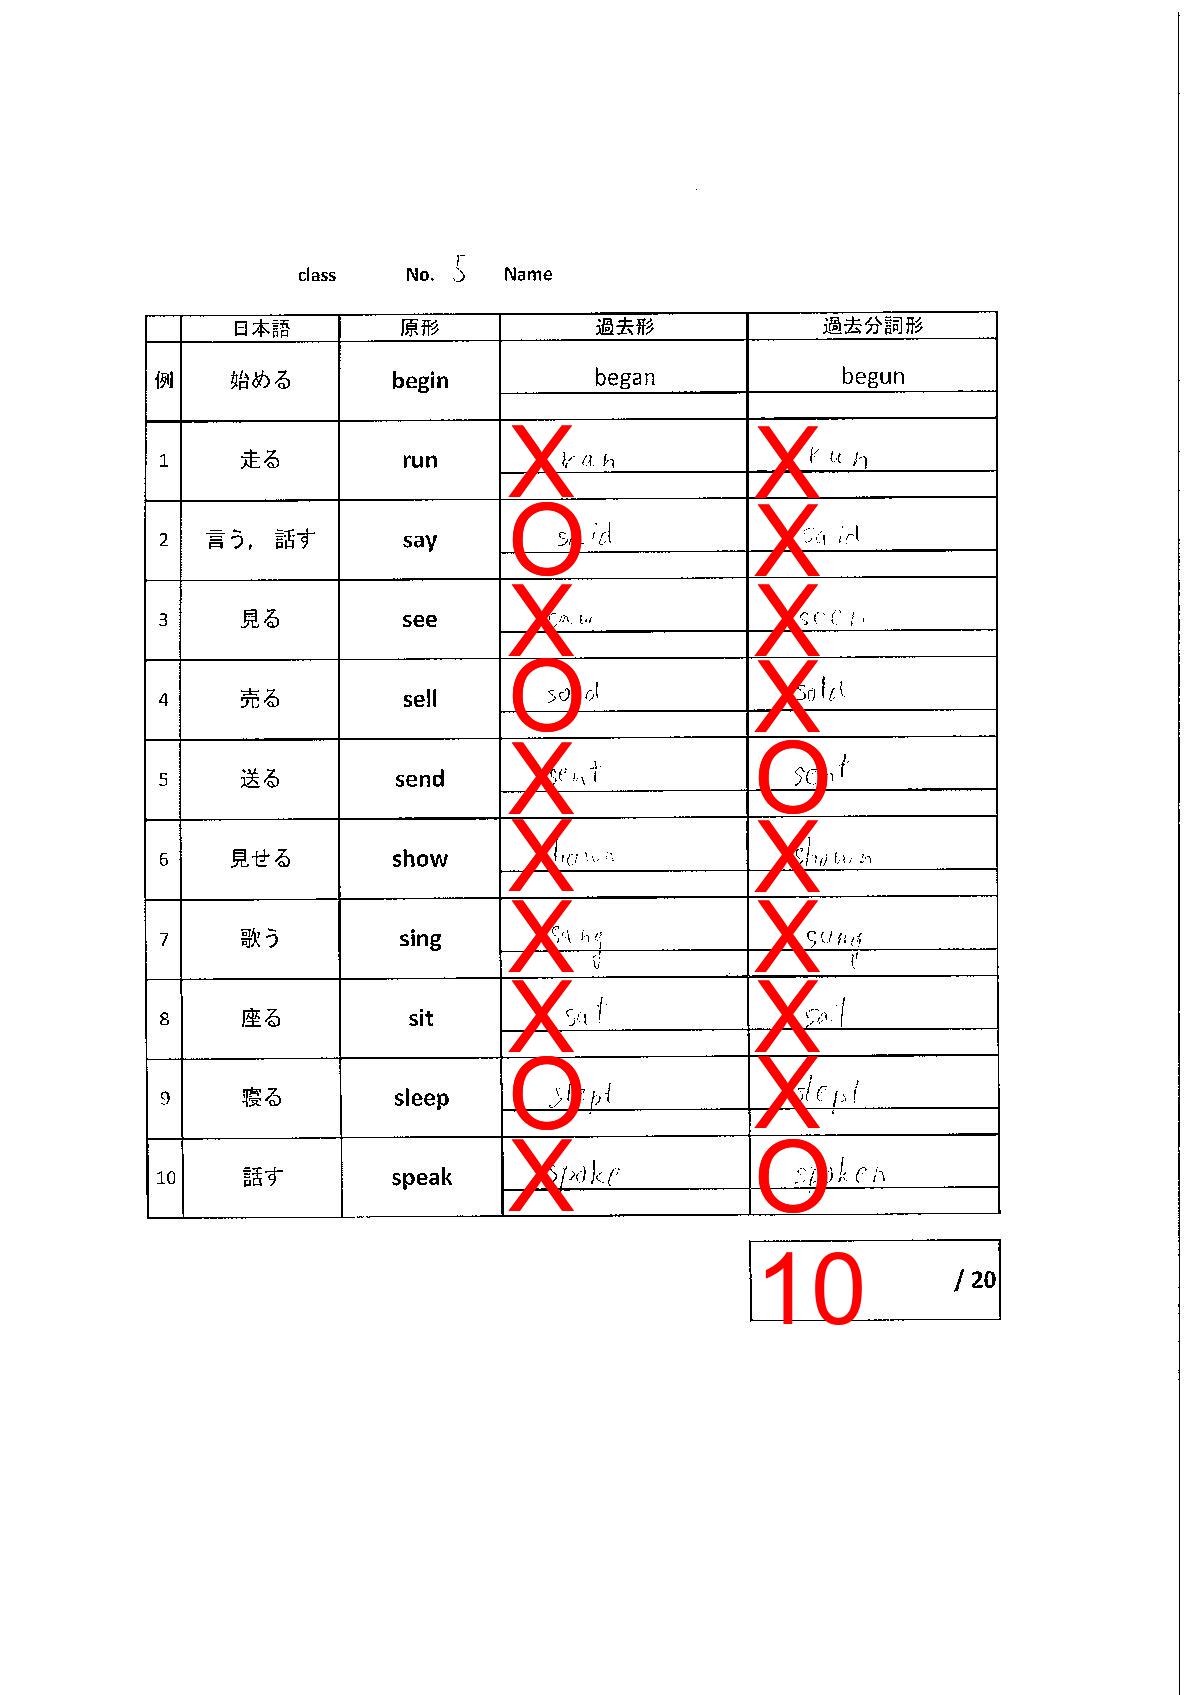 class No. 5 Name
日本語 原形 過去形 過去分詞形
例 始める begin began begun
1 走る run X ran X run
2 言う, 話す say O said X said
3 見る see X saw X seen
4 売る sell O sold X sold
5 送る send X sent O sent
6 見せる show X X shown
7 歌う sing X sang X sung
8 座る sit X sat X sat
9 寝る sleep O slept X slept
10 話す speak X spoke O spoken
10 / 20